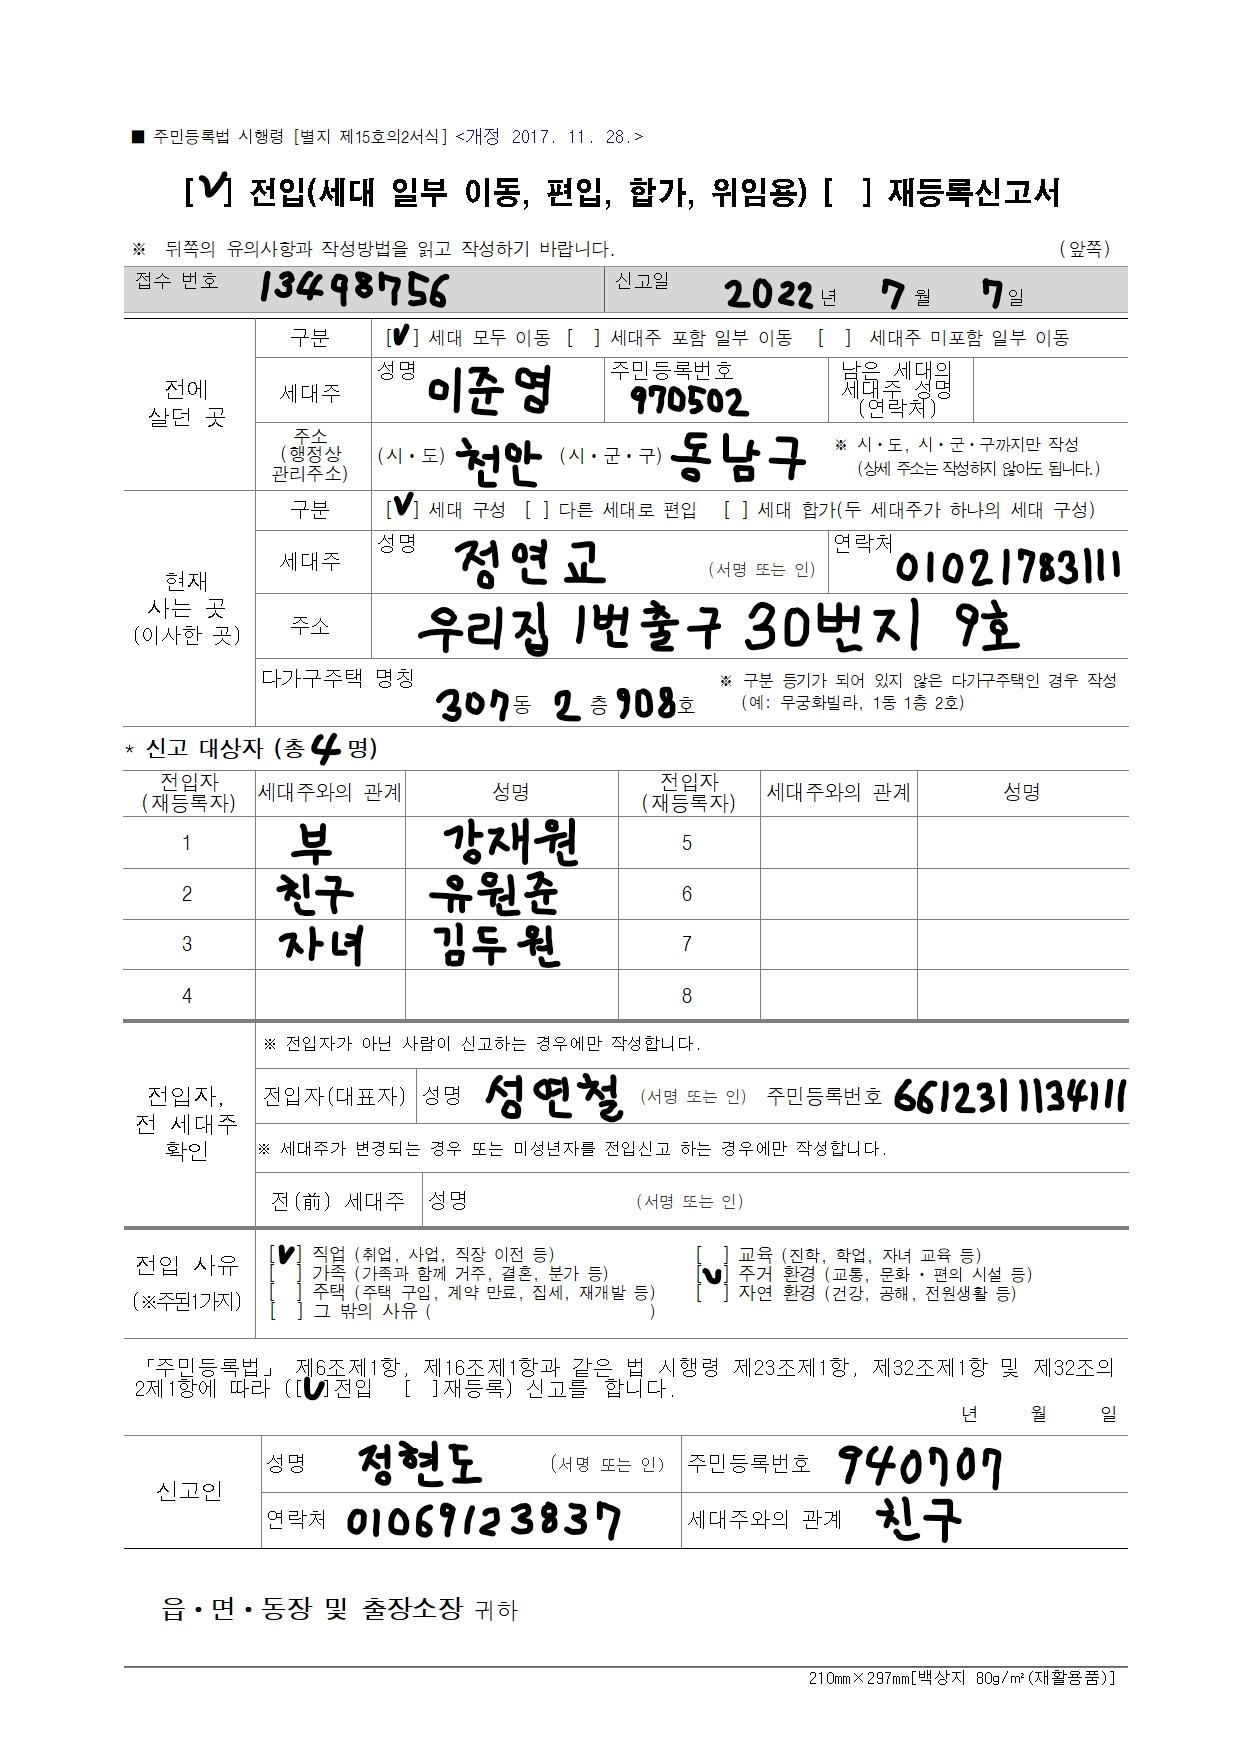 ■ 주민등록법 시행령 [별지 제15호의2서식] <개정 2017. 11. 28.>
[V] 전입(세대 일부 이동, 편입, 합가, 위임용) [ ] 재등록신고서
※ 뒤쪽의 유의사항과 작성방법을 읽고 작성하기 바랍니다. (앞쪽)
접수 번호 13498756 신고일 2022년 7월 7일
전에 살던 곳
구분 [V] 세대 모두 이동 [ ] 세대주 포함 일부 이동 [ ] 세대주 미포함 일부 이동
세대주 성명 이준엽 주민등록번호 970502 남은 세대의 세대주 성명 (연락처)
주소 (행정상 관리주소) (시·도) 천안 (시·군·구) 동남구 ※ 시·도, 시·군·구까지만 작성
(상세 주소는 작성하지 않아도 됩니다.)
현재 사는 곳 (이사한 곳)
구분 [V] 세대 구성 [ ] 다른 세대로 편입 [ ] 세대 합가(두 세대주가 하나의 세대 구성)
세대주 성명 정연교 (서명 또는 인) 연락처 01021783111
주소 우리집 1번출구 30번지 9호
다가구주택 명칭 307동 2층 908호 ※ 구분 등기가 되어 있지 않은 다가구주택인 경우 작성
(예: 무궁화빌라, 1동 1층 2호)
* 신고 대상자 (총 4 명)
전입자 (재등록자) 세대주와의 관계 성명 전입자 (재등록자) 세대주와의 관계 성명
1 부 강재원 5
2 친구 유원준 6
3 자녀 김두원 7
4 8
전입자, 전 세대주 확인
※ 전입자가 아닌 사람이 신고하는 경우에만 작성합니다.
전입자(대표자) 성명 섬연철 (서명 또는 인) 주민등록번호 6612311134111
※ 세대주가 변경되는 경우 또는 미성년자를 전입신고 하는 경우에만 작성합니다.
전(前) 세대주 성명 (서명 또는 인)
전입 사유 (※주된1가지)
[V] 직업 (취업, 사업, 직장 이전 등) [ ] 교육 (진학, 학업, 자녀 교육 등)
[ ] 가족 (가족과 함께 거주, 결혼, 분가 등) [V] 주거 환경 (교통, 문화·편의 시설 등)
[ ] 주택 (주택 구입, 계약 만료, 집세, 재개발 등) [ ] 자연 환경 (건강, 공해, 전원생활 등)
[ ] 그 밖의 사유 ( )
「주민등록법」 제6조제1항, 제16조제1항과 같은 법 시행령 제23조제1항, 제32조제1항 및 제32조의
2제1항에 따라 ([V]전입 [ ]재등록) 신고를 합니다.
년 월 일
신고인
성명 정현도 (서명 또는 인) 주민등록번호 940707
연락처 01069123837 세대주와의 관계 친구
읍·면·동장 및 출장소장 귀하
210mm×297mm[백상지 80g/㎡(재활용품)]